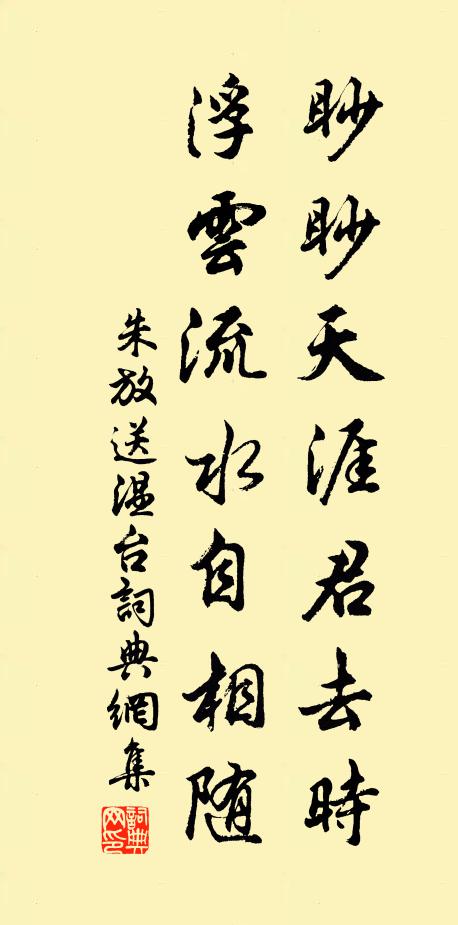 眇眇天涯君去時
浮雲流水自相随
朱放送温台詞典網集
詞典网印